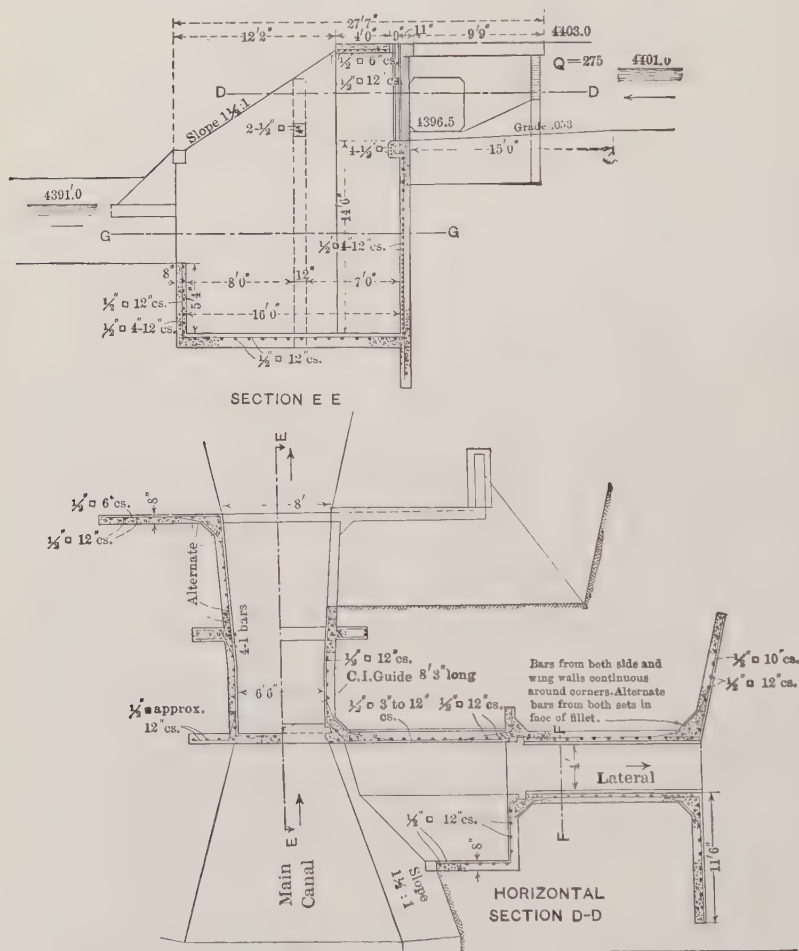 27'7"
12'2"
4'0"
9"
11"
9'9"
4403.0
½" □ 6"cs.
½" □ 12"cs.
Q=275
4401.0
D
D
Slope 1½:1
2-½" □
4396.5
Grade .053
4-½" □
15'0"
4391.0
14'6"
G
G
½" □ 4-12"cs.
8"
8'0"
12"
7'0"
½" □ 12"cs.
5'4"
½" □ 4-12"cs.
16'0"
½" □ 12"cs.
SECTION E E
E
8'
½" □ 6"cs.
8"
½" □ 12"cs.
Alternate
4-1 bars
½" □ 12"cs.
C.I. Guide 8'3" long
6'6"
½" □ approx.
12"cs.
½" □ 3" to 12"
cs.
½" □ 12"cs.
Bars from both side and
wing walls continuous
around corners. Alternate
bars from both sets in
face of fillet.
½" □ 10"cs.
½" □ 12"cs.
F
Lateral
F
E
Main
Canal
½" □ 12"cs.
8"
Slope
1½ : 1
11'6"
HORIZONTAL
SECTION D-D